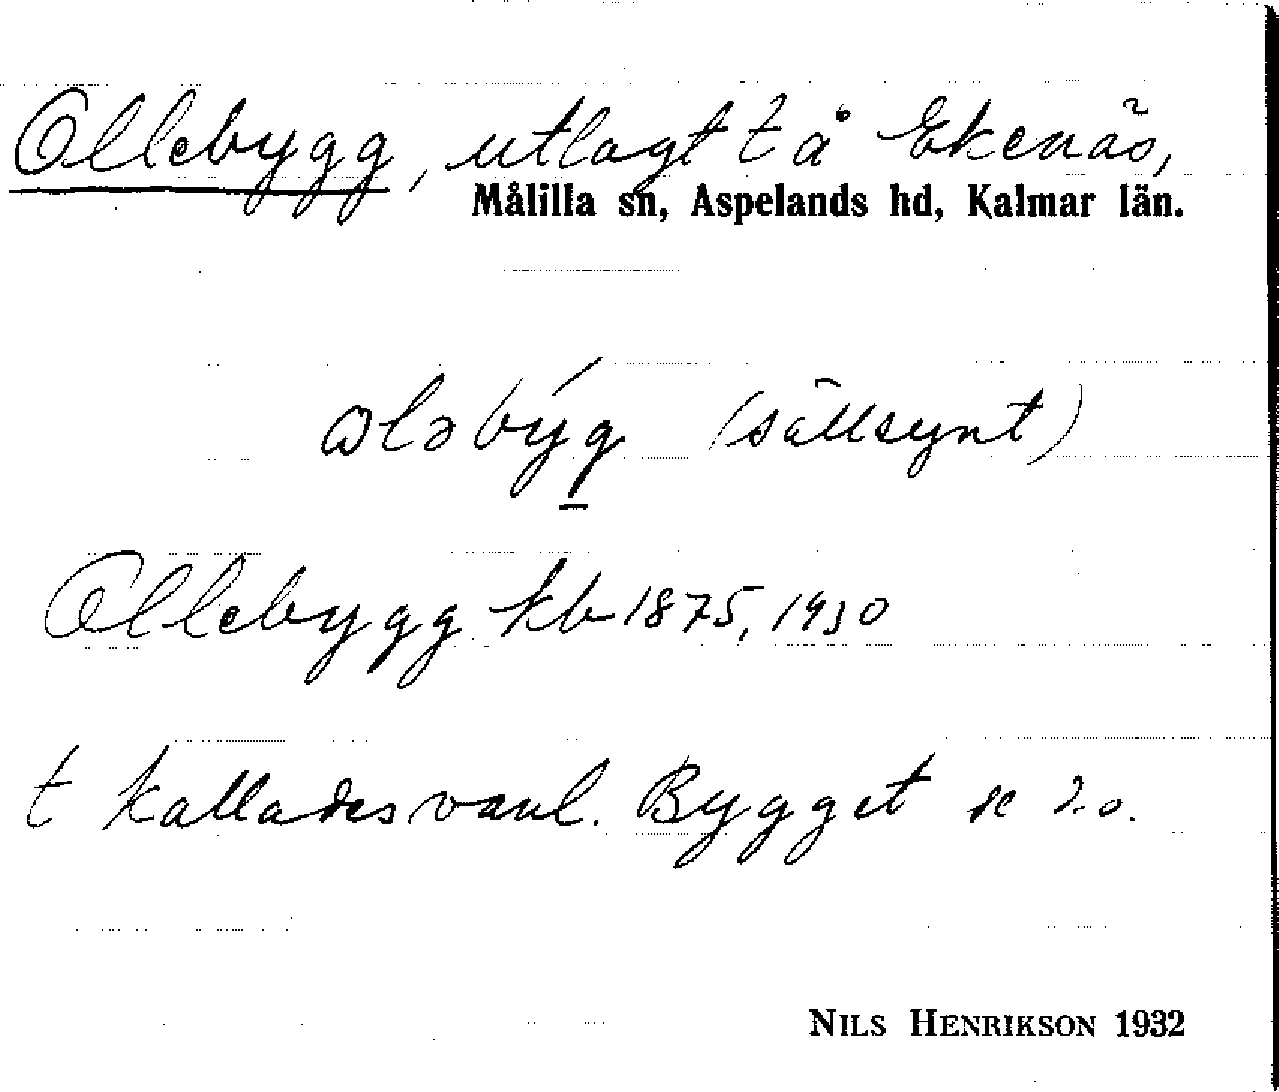 Ollebygg, utlagt t å Ekenäs,
Målilla sn, Aspelands hd, Kalmar län.
ωləbýg (sällsynt)
Ollebygg kb 1875, 1930
t kallades vanl. Bygget se d.o.
NILS HENRIKSON 1932